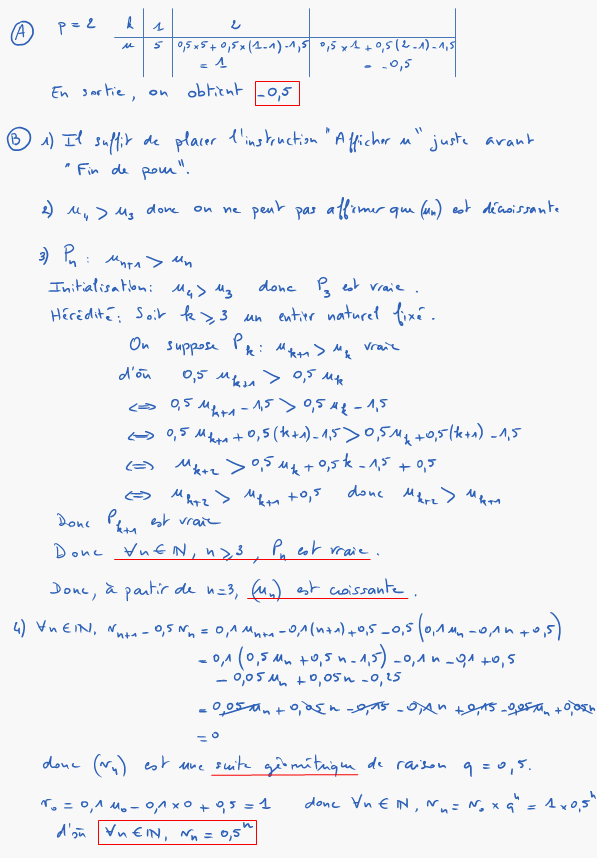 Ⓐ p = 2
k | 1 | 2
u | 5 | 0,5×5 + 0,5×(1-1) - 1,5 = 1 | 0,5×1 + 0,5(2-1) - 1,5 = -0,5
En sortie, on obtient -0,5
Ⓑ 1) Il suffit de placer l'instruction "Afficher u" juste avant
"Fin de pour".
2) u₄ > u₃ donc on ne peut pas affirmer que (uₙ) est décroissante
3) Pₙ : uₙ₊₁ > uₙ
Initialisation: u₄ > u₃ donc P₃ est vraie.
Hérédité: Soit k ⩾ 3 un entier naturel fixé.
On suppose Pₖ : uₖ₊₁ > uₖ vraie
d'où 0,5 uₖ₊₁ > 0,5 uₖ
⟺ 0,5 uₖ₊₁ - 1,5 > 0,5 uₖ - 1,5
⟺ 0,5 uₖ₊₁ + 0,5(k+1) - 1,5 > 0,5 uₖ + 0,5(k+1) - 1,5
⟺ uₖ₊₂ > 0,5 uₖ + 0,5k - 1,5 + 0,5
⟺ uₖ₊₂ > uₖ₊₁ + 0,5 donc uₖ₊₂ > uₖ₊₁
Donc Pₖ₊₁ est vraie
Donc ∀n ∈ ℕ, n ⩾ 3, Pₙ est vraie.
Donc, à partir de n=3, (uₙ) est croissante.
4) ∀n ∈ ℕ, vₙ₊₁ - 0,5 vₙ = 0,1 uₙ₊₁ - 0,1(n+1) + 0,5 - 0,5(0,1 uₙ - 0,1n + 0,5)
= 0,1(0,5 uₙ + 0,5n - 1,5) - 0,1n - 0,1 + 0,5
- 0,05 uₙ + 0,05n - 0,25
= 0,05 uₙ + 0,05n - 0,15 - 0,1n + 0,15 - 0,05 uₙ + 0,05n
= 0
donc (vₙ) est une suite géométrique de raison q = 0,5.
v₀ = 0,1 u₀ - 0,1 × 0 + 0,5 = 1 donc ∀n ∈ ℕ, vₙ = v₀ × qⁿ = 1 × 0,5ⁿ
d'où ∀n ∈ ℕ, vₙ = 0,5ⁿ